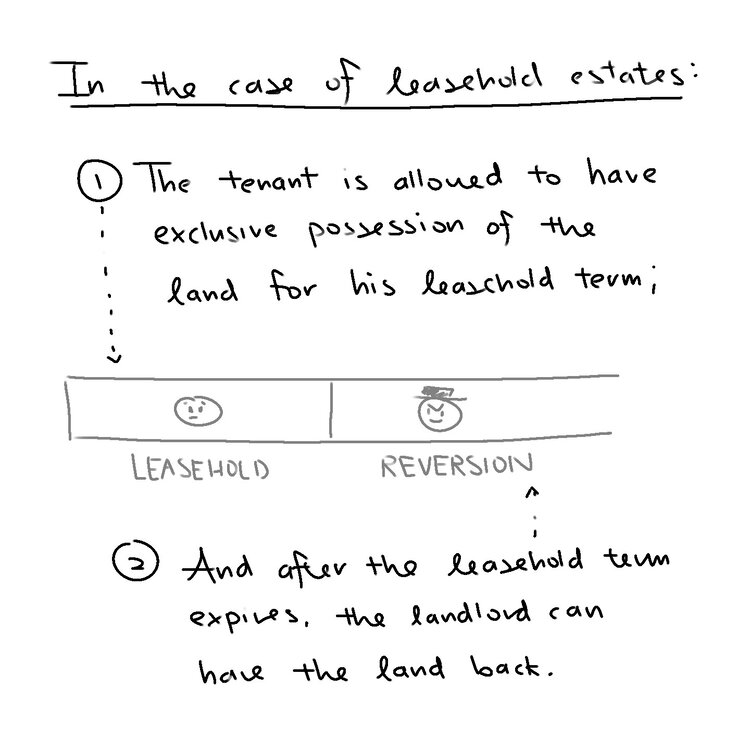 In the case of leasehold estates:
① The tenant is allowed to have
exclusive possession of the
land for his leasehold term;
LEASEHOLD REVERSION
② And after the leasehold term
expires, the landlord can
have the land back.